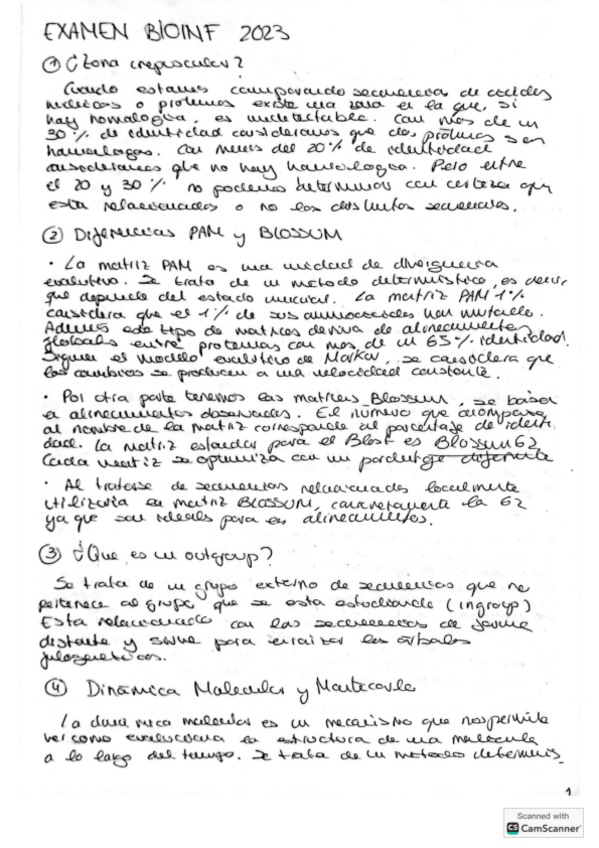 EXAMEN BIOINF 2023
① ¿Zona crepuscular?
Cuando estamos comparando secuencias de ácidos
nucleicos o proteínas existe una zona en la que, si
hay homología, es indetectable. Con más de un
30% de identidad consideramos que dos proteínas son
homólogas. Con menos del 20% de identidad
consideramos que no hay homología. Pero entre
el 20 y 30% no podemos determinar con certeza que
esta relacionados o no las distintas secuencias.
② Diferencias PAM y BLOSSUM
· La matriz PAM es una unidad de divergencia
evolutiva. Se trata de un metodo deterministico, es decir,
que depende del estado inicial. La matriz PAM 1%
considera que el 1% de sus aminoacidos han mutado.
Además este tipo de matrices deriva de alineamientos
globales entre proteinas con mas de un 65% identidad.
Siguen el modelo evolutivo de Markov, se considera que
los cambios se producen a una velocidad constante.
· Por otra parte tenemos las matrices Blossum, se basan
en alineamientos observados. El número que acompaña
al nombre de la matriz corresponde al porcentaje de identi
dad. La matriz estandar para el Blast es Blossum 62
Cada matriz se optimiza con un porcentaje diferente
· Al tratarse de secuencias relacionadas localmente
utilizaria la matriz BLOSSUM, concretamente la 62
ya que son ideales para los alineamientos.
③ ¿Que es un outgroup?
Se trata de un grupo externo de secuencias que no
pertenece al grupo que se esta estudiando (ingroup)
Esta relacionado con las secuencias de forma
distante y sirve para enraizar los árboles
filogeneticos.
④ Dinámica Molecular y Montecarlo
La dinamica molecular es un mecanismo que nos permite
ver como evoluciona la estructura de una molecula
a lo largo del tiempo. Se trata de un metodo determinis_
1
Scanned with
CS CamScanner